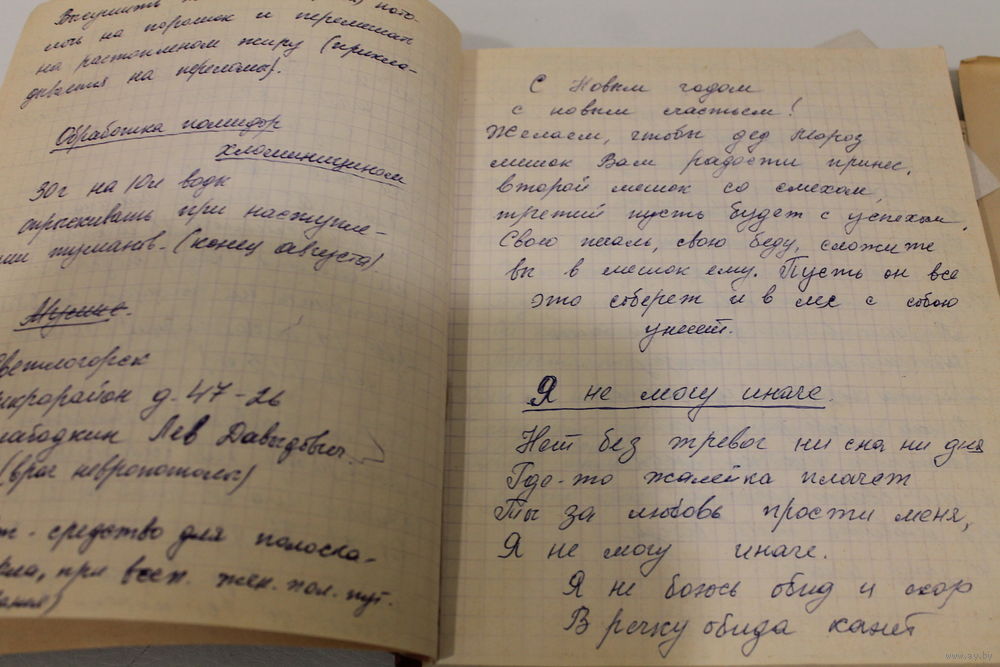 Высушить
лочь на порошок и перемешат
на растопленом жиру (прикла-
дывания на переломы).
Обработка помидор
хломиницином
30г на 10л воды
опрыскивать при наступле-
нии туманов. (конец августа)
ветлогорск
икрорайон д. 47-26
Лев Давыдович.
(врач невропотолог)
- средство для полоска-
, при восп. жен. пол. пут.
С Новым годом
с новым счастьем!
Желаем, чтобы дед Мороз
мешок Вам радости принес,
второй мешок со смехом,
третий пусть будет с успехом.
Свою печаль, свою беду, сложите
вы в мешок ему. Пусть он все
это соберет и в лес с собою
унесет.
Я не могу иначе.
Нет без тревог ни сна ни дня
Где-то жалейка плачет
Ты за любовь прости меня,
Я не могу иначе.
Я не боюсь обид и ссор
В речку обида канет
www.ay.by